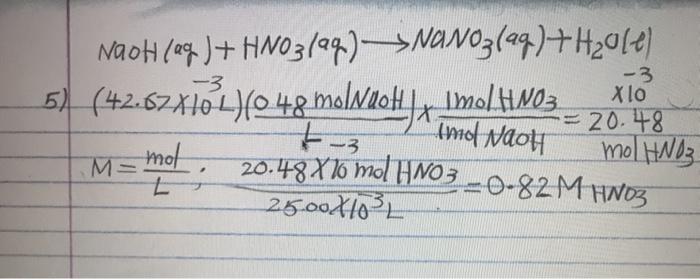 NaOH(aq)+HNO3(aq)→NaNO3(aq)+H2O(l)
5) (42.67×10⁻³L)(0.48 molNaOH/L)× 1molHNO3/1mol NaOH = 20.48×10⁻³ mol HNO3
M = mol/L ; 20.48×10⁻³ mol HNO3/25.00×10⁻³L = 0.82M HNO3